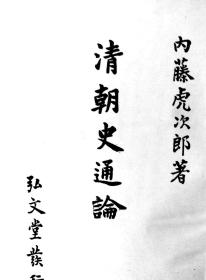 内藤虎次郎著
清朝史通論
弘文堂發行